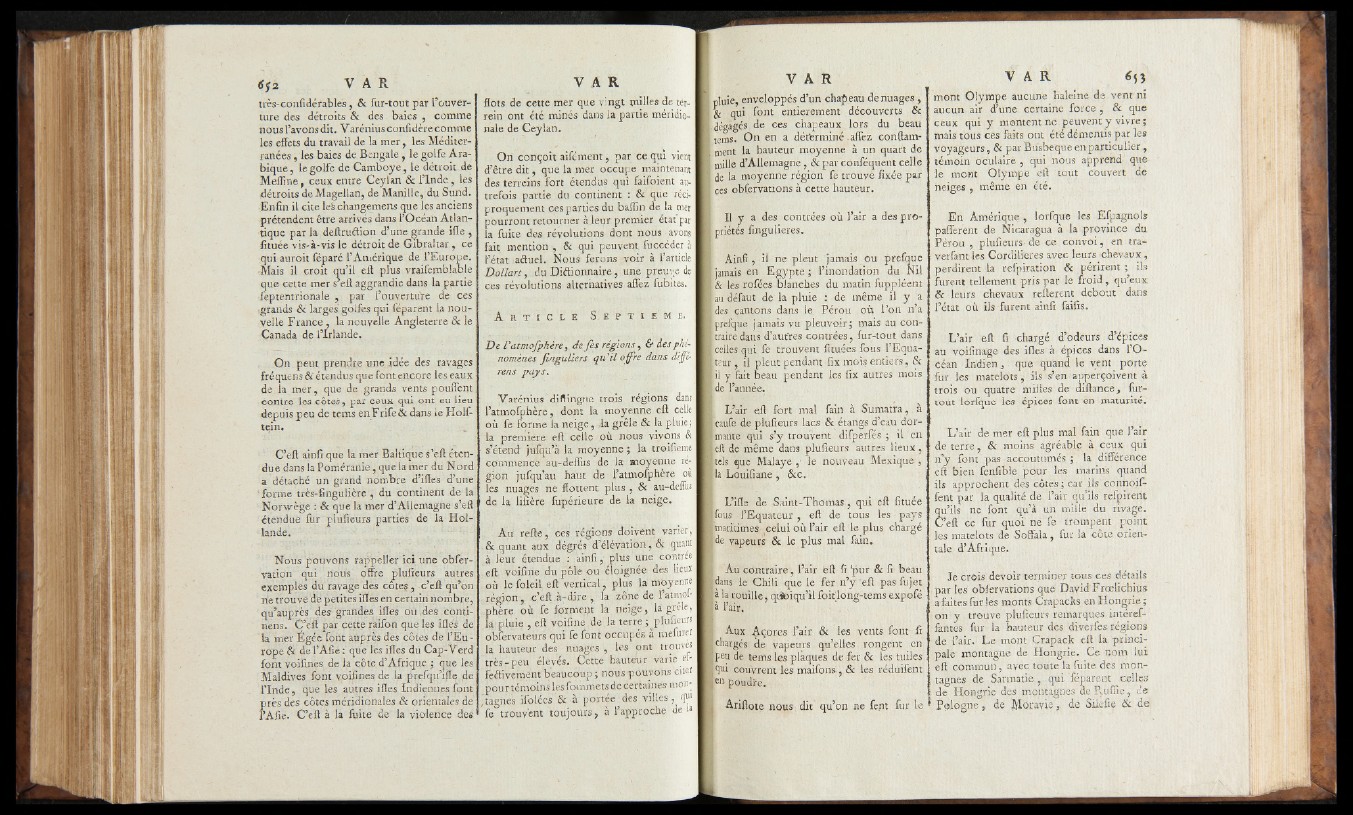 652 V A R
très-considérables, & sur-tout par l'ouver-
ture des détroits & des baies , comme
nous l'avons dit. Varénius considère comme
les effets du travail de la mer , les Méditer-
ranées , les baies de Bengale , le golfe Ara-
bique , le golfe de Camboye, le détroit de
Messine, ceux entre Ceylan & l'Inde , les
détroits de Magellan, de Manille, du Sund.
Enfin il cite les changemens que les anciens
prétendent être arrivés dans l'Océan Atlan-
tique par la destruction d'une grande isle ,
située vis-à-vis le détroit de Gibraltar , ce
qui auroit séparé l'Amérique de l'Europe.
Mais il croit qu'il est plus vraisemblable
que cette mer s'est aggrandie dans la partie
septentrionale , par l'ouverture de ces
grands & larges golfes qui séparent la nou-
velle France , la nouvelle Angleterre & le
Canada de l'Irlande.
On peut prendre une idée des ravages
fréquens & étendus que font encore les eaux
de la mer, que de grands vents poussent
contre les côtes, par ceux qui ont eu lieu
depuis peu de tems en Frise & dans le Holf-
tein.
C'est ainsi que la mer Baltique s'est éten-
due dans la Poméranie, que la mer du Nord
a détaché un grand nombre d'isles d'une
forme très-singulière , du continent de la
Norwège : & que la mer d'Allemagne s'est
étendue sur plusieurs parties de la Hol-
lande.
Nous pouvons rappeller ici une obser-
vation qui nous offre plusieurs autres
exemples du ravage des côtes , c'est qu'on
ne trouve de petites isles en certain nombre,
qu'auprès des grandes isles ou des conti-
nens. C'est par cette raison que les isles de
la mer Egée sont auprès des côtes de l'Eu-
rope & de l'Asie : que les isles du Cap-Verd
sont voisines de la côte d'Afrique ; que les
Maldives sont voisines de la presqu'isle de
l'Inde, que les autres isles Indiennes sont
près des côtes méridionales & orientales de
l'Asie. C'est à la suite de la violence des
V A R
flots de cette mer que vingt milles de ter-
rein ont été minés dans la partie méridio-
nale de Ceylan.
On conçoit aisément, par ce qui vient
d'être dit, que la mer occupe maintenant
des terreins fort étendus qui faisoient au-
trefois partie du continent : & que réci-
proquement ces parties du bassin de la mer
pourront retourner à leur premier état par
la suite des révolutions dont nous avons
fait mention , & qui peuvent succéder à
l'état actuel. Nous ferons voir à l'article
Dollart, du Dictionnaire, une preuve de
ces révolutions alternatives assez subites.
A R T I C L E S E P T I E M E.
De l'atmosphère, de ses régions, & des phé-
nomènes singuliers qu'il offre dans diffé-
rens pays.
Varénius distingue trois régions dans
l'atmosphère, dont la moyenne est celle
où se forme la neige, la grêle & la pluie;
la premiere est celle où nous vivons &
s'étend jusqu'à la moyenne ; la troisième
commence au-dessus de la moyenne ré-
gion jusqu'au haut de l'atmosphère où
les nuages ne flottent plus , & au-dessus
de la lisière supérieure de la neige.
Au reste, ces régions doivent varier,
& quant aux dégrés d'élévation, & quant
à leur étendue : ainsi, plus une contrée
est voisine du pôle ou éloignée des lieux
où le soleil est vertical, plus la moyenne
région, c'est à-dire , la zône de l'atmos-
phère où se forment la neige, la grêle,
la pluie , est voisine de la terre ; plusieurs
observateurs qui se sont occupés à mesurer
la hauteur des nuages , les ont trouvés
très-peu élevés. Cette hauteur varie ef-
fectivement beaucoup ; nous pouvons citer
pour témoins les sommets de certaines mon-
tagnes isolées & à portée des villes, qui
se trouvent toujours, à l'approche de la
V A R
pluie, enveloppés d'un chapeau de nuages ,
& qui sont entierement découverts &
dégagés de ces chapeaux lors du beau
tems. On en a déterminé assez constam-
ment la hauteur moyenne à un quart de
mille d'Allemagne, & par conséquent celle
de la moyenne région se trouve fixée par
ces observations à cette hauteur.
Il y a des contrées où l'air a des pro-
priétés singulieres.
Ainsi, il ne pleut jamais ou presque
jamais en Egypte ; l'inondation du Nil
& les rosées blanches du matin suppléent
au défaut de la pluie : de même il y a
des cantons dans le Pérou où l'on n'a
presque jamais vu pleuvoir ; mais au con-
traire dans d'autres contrées, sur-tout dans
celles qui se trouvent situées sous l'Equa-
teur , il pleut pendant six mois entiers, &
il y fait beau pendant les six autres mois
de l'année.
L'air est fort mal sain à Sumatra, à
cause de plusieurs lacs & étangs d'eau dor-
mante qui s'y trouvent dispersés ; il en
est de même dans plusieurs autres lieux,
tels que Malaye , le nouveau Mexique ,
la Louisiane , &c.
L'isle de Saint-Thomas, qui est située
sous l'Equateur , est de tous les pays
maritimes celui où l'air est le plus chargé
de vapeurs & le plus mal sain.
Au contraire, l'air est si pur & si beau
dans le Chili que le fer n'y est pas sujet
à la rouille, quoiqu'il soit long-tems exposé
à l'air.
Aux Açores l'air & les vents sont si
chargés de vapeurs qu'elles rongent en
peu de tems les plaques de fer & les tuiles
qui couvrent les maisons, & les réduisent
en poudre.
Aristote nous dit qu'on ne sent sur le
V A R 653
mont Olympe aucune haleine de vent ni
aucun air d'une certaine force , & que
ceux qui y montent ne peuvent y vivre ;
mais tous ces faits ont été démentis par les
voyageurs, & par Busbeque en particulier,
témoin oculaire , qui nous apprend que
le mont Olympe est tout couvert de
neiges , même en été.
En Amérique , lorsque les Espagnols
passerent de Nicaragua à la province du
Pérou , plusieurs de ce convoi, en tra-
versant les Cordilieres avec leurs chevaux ,
perdirent la respiration & périrent ; ils
furent tellement pris par le froid, qu'eux
& leurs chevaux resterent debout dans
l'état où ils furent ainsi saisis.
L'air est si chargé d'odeurs d'épices
au voisinage des isles à épices dans l'O-
céan Indien , que quand le vent porte
sur les matelots, ils s'en apperçoivent à
trois ou quatre milles de distance, sur-
tout lorsque les épices sont en maturité.
L'air de mer est plus mal sain que l'air
de terre, & moins agréable à ceux qui
n'y sont pas accoutumés ; la différence
est bien sensible pour les marins quand
ils approchent des côtes ; car ils connois-
sent par la qualité de l'air qu'ils respirent
qu'ils ne sont qu'à un mille du rivage.
C'est ce sur quoi ne se trompent point
les matelots de Soffala, sur la côte orien-
tale d'Afrique.
Je crois devoir terminer tous ces détails
par les observations que David Frœlichius
a faites sur les monts Crapacks en Hongrie ;
on y trouve plusieurs remarques intéres-
santes sur la hauteur des diverses régions
de l'air. Le mont Crapack est la princi-
pale montagne de Hongrie. Ce nom lui
est commun, avec toute la suite des mon-
tagnes de Sarmatie , qui séparent celles
de Hongrie des montagnes de Russie, de
Pologne , de Moravie, de Silesie & de